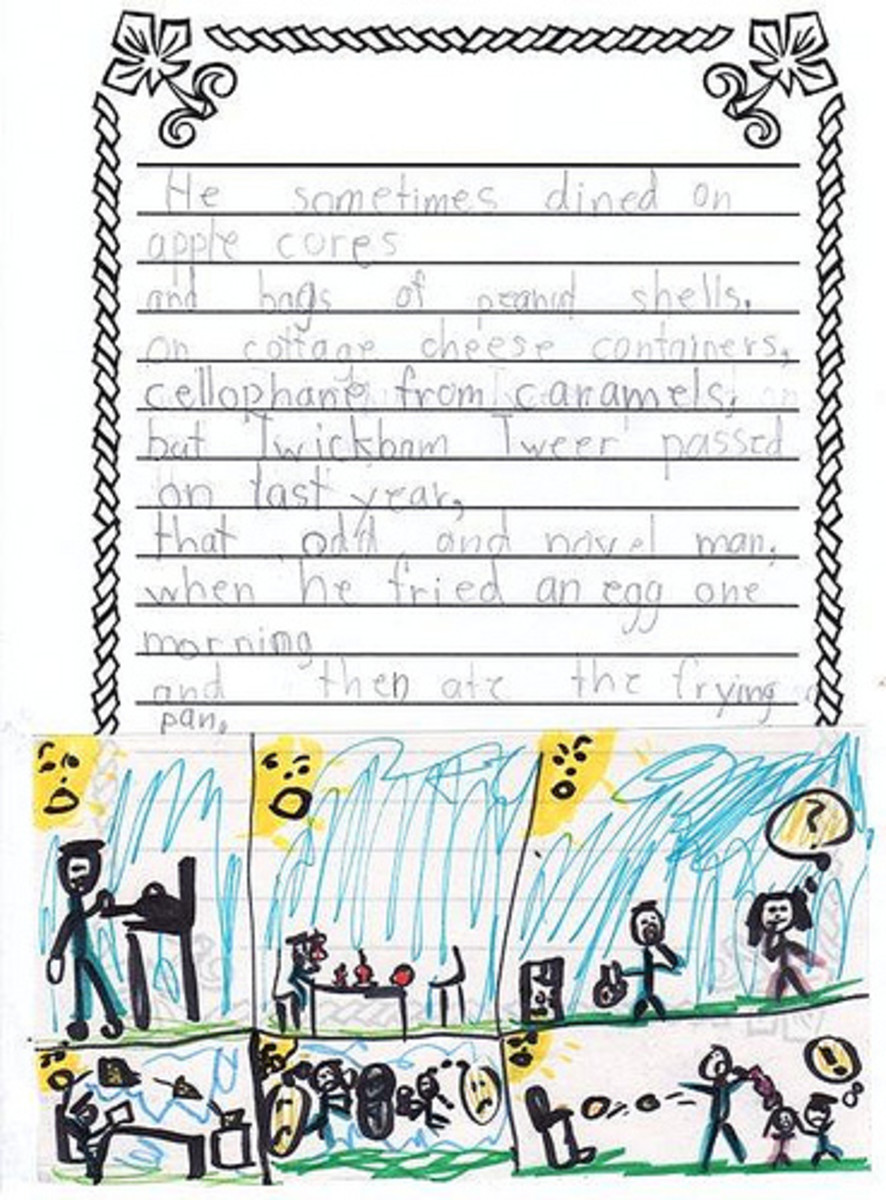 He sometimes dined on
apple cores
and bags of peanut shells,
on cottage cheese containers,
cellophane from caramels,
but Twickham Tweer passed
on last year,
that odd and novel man,
when he fried an egg one
morning
and then ate the frying
pan.
?
!